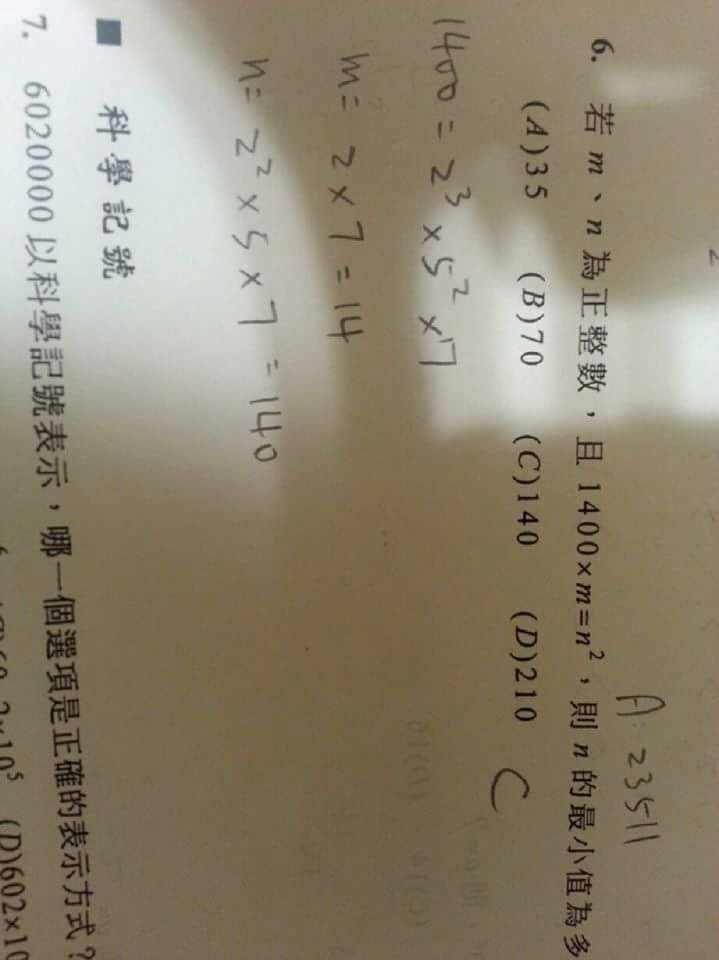 A: 23511
6. 若 m、n 為正整數,且 1400×m=n²,則 n 的最小值為多
(A)35 (B)70 (C)140 (D)210
C
1400 = 2³ × 5² × 7
m = 2 × 7 = 14
n = 2² × 5 × 7 = 140
■ 科學記號
7. 6020000 以科學記號表示,哪一個選項是正確的表示方式?
2×10⁵ (D)602×10